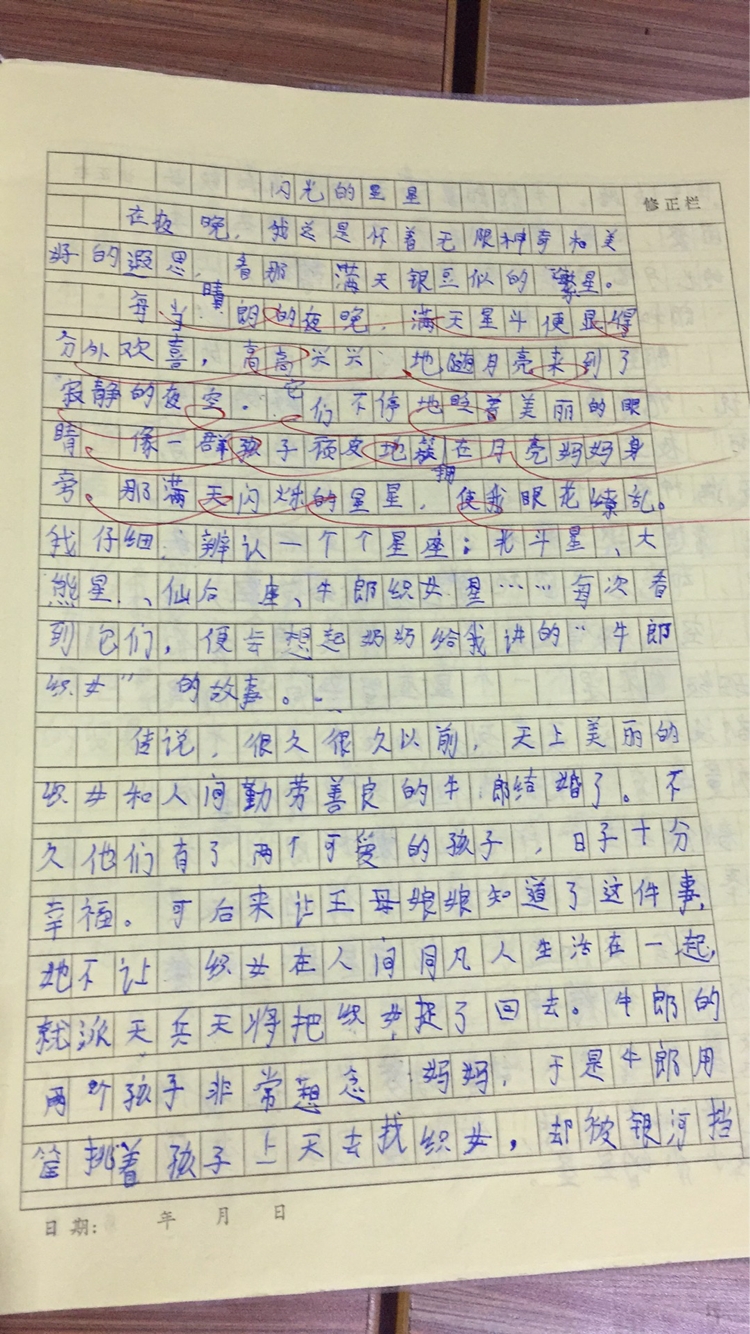 闪光的星星
修正栏
在夜晚，我总是怀着无限神奇和美
好的遐思，看那满天银豆似的繁星。
每当晴朗的夜晚，满天星斗便显得
分外欢喜，高高兴兴地随月亮来到了
寂静的夜空。它们不停地眨着美丽的眼
睛，像一群孩子顽皮地簇拥在月亮妈妈身
旁，那满天闪烁的星星，使我眼花缭乱。
我仔细辨认一个个星座：北斗星、大
熊星、仙后座、牛郎织女星……每次看
到它们，便会想起奶奶给我讲的“牛郎
织女”的故事。
传说，很久很久以前，天上美丽的
织女和人间勤劳善良的牛郎结婚了。不
久他们有了两个可爱的孩子，日子十分
幸福。可后来让王母娘娘知道了这件事，
她不让织女在人间同凡人生活在一起，
就派天兵天将把织女捉了回去。牛郎的
两个孩子非常想念妈妈，于是牛郎用
筐挑着孩子上天去找织女，却被银河挡
日期： 年 月 日